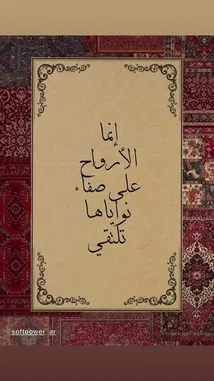 إنما
الأرواح
على صفاء
نواياها
تلتقي
softpower_ar